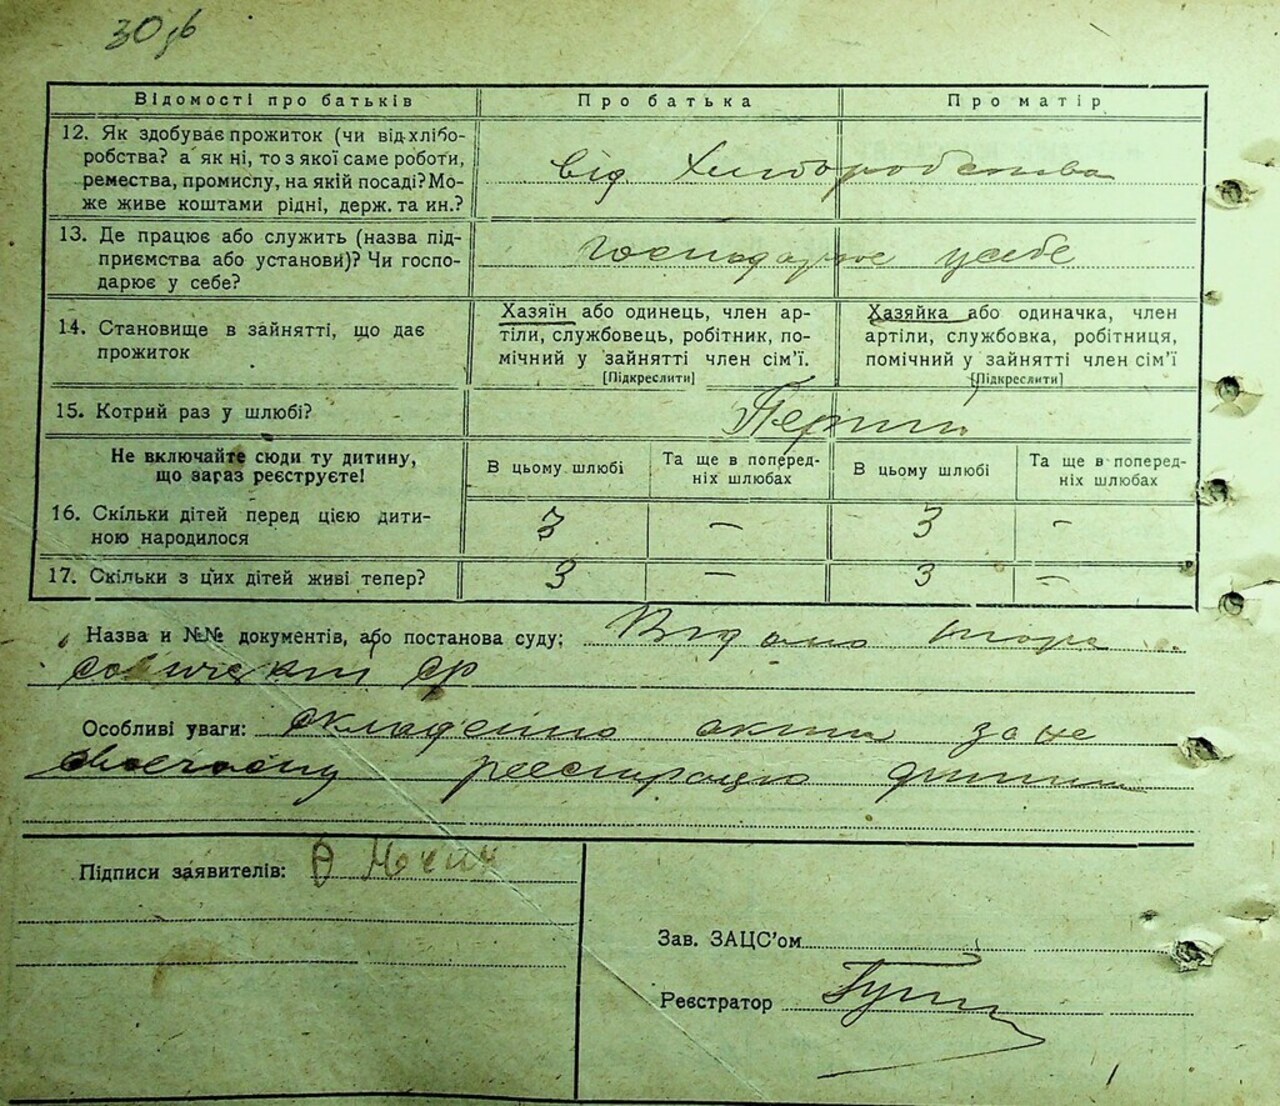 30 зб
Відомості про батьків
Про батька
Про матір
12. Як здобуває прожиток (чи від хлібо-
робства? а як ні, то з якої саме роботи,
ремества, промислу, на якій посаді? Мо-
же живе коштами рідні, держ. та ин.?
від Хліборобства
13. Де працює або служить (назва під-
приємства або установи)? Чи госпо-
дарює у себе?
господарює усебе
14. Становище в зайнятті, що дає
прожиток
Хазяїн або одинець, член ар-
тіли, службовець, робітник, по-
мічний у зайнятті член сім'ї.
[Підкреслити]
Хазяйка або одиначка, член
артіли, службовка, робітниця,
помічний у зайнятті член сім'ї
[Підкреслити]
15. Котрий раз у шлюбі?
Перший
Не включайте сюди ту дитину,
що зараз реєструєте!
В цьому шлюбі
Та ще в поперед-
ніх шлюбах
В цьому шлюбі
Та ще в поперед-
ніх шлюбах
16. Скільки дітей перед цією дити-
ною народилося
3 — 3 —
17. Скільки з цих дітей живі тепер?
3 — 3 —
Назва и №№ документів, або постанова суду:
Особливі уваги: складено акта за не
своєчасну реєстрацію дитини
Підписи заявителів:
Зав. ЗАЦС'ом
Реєстратор